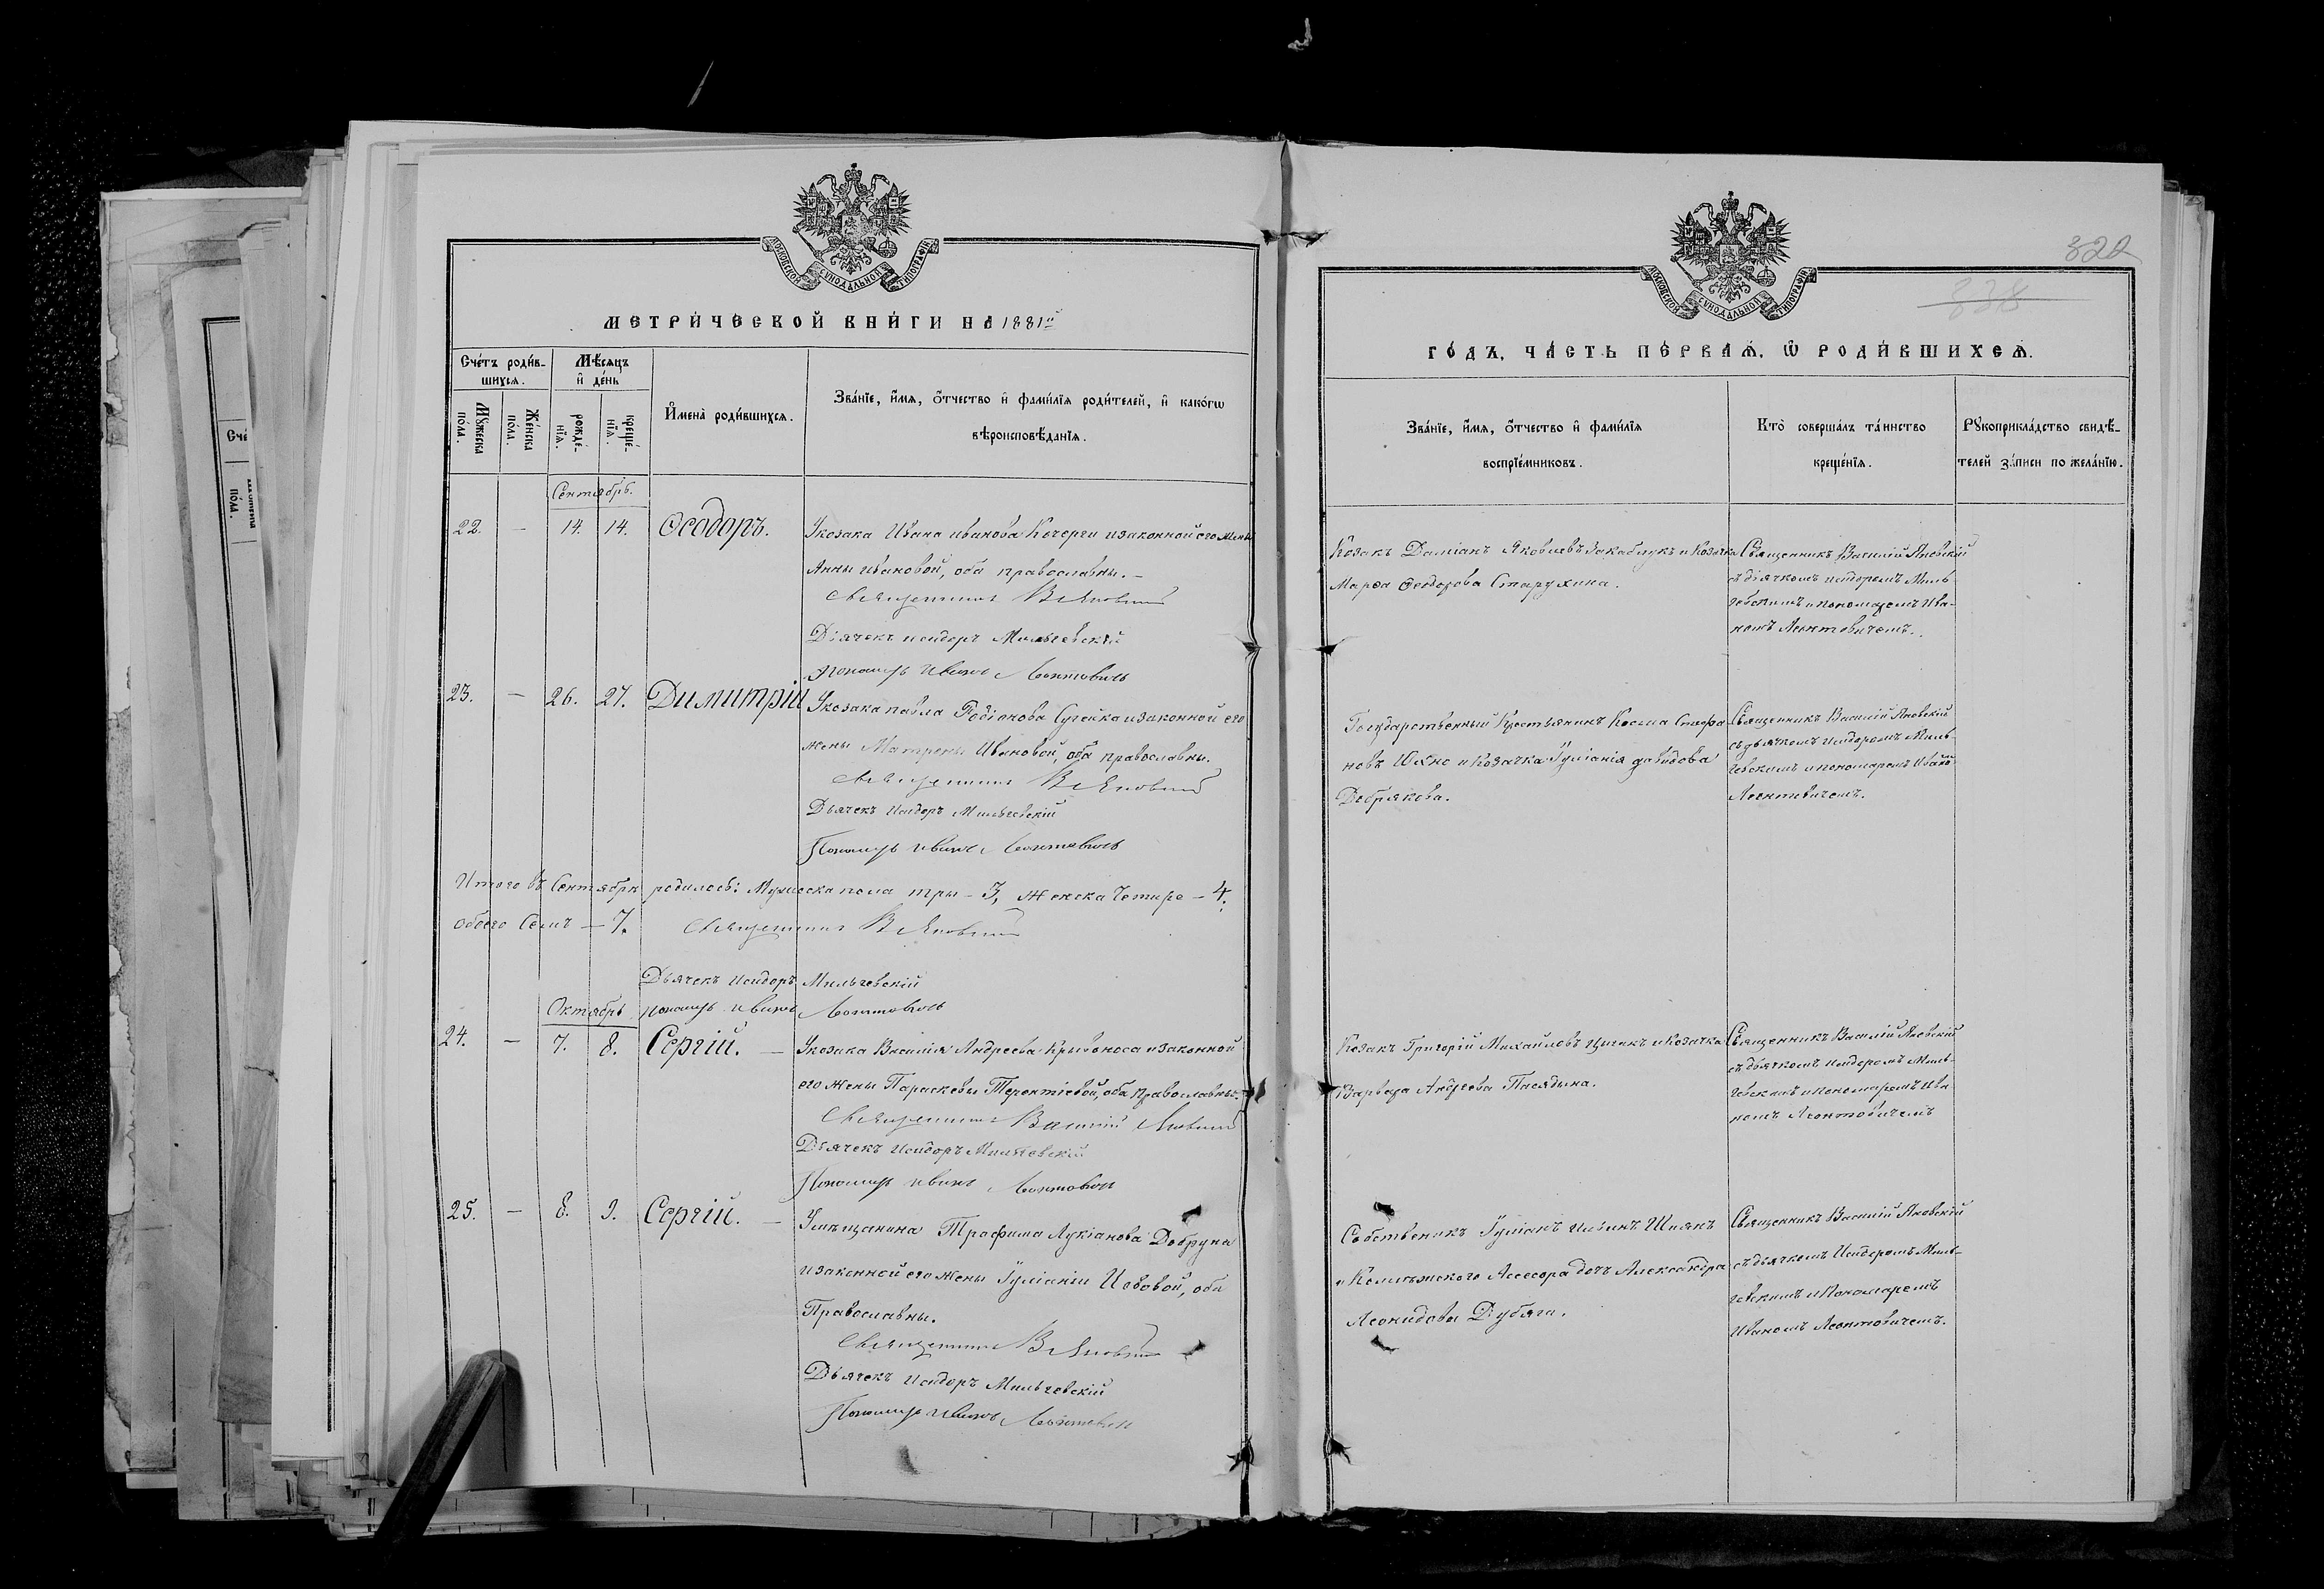 МОСКОВСКОЙ СѴНОДАЛЬНОЙ ТИПОГРАФІИ
МЕТРИ́ЧЕСКОЙ КНИ́ГИ НА 1881й
Сче́тъ роди́в-
шихсѧ.
Мѣ́сѧцъ
и҆ де́нь
Мꙋ́жеска
по́ла.
Же́нска
по́ла.
рожде́-
нїѧ.
креще́-
нїѧ.
И҆мена̀ роди́вшихсѧ.
Зва́нїе, и҆́мѧ, ѻ҆́тчество и҆ фами́лїѧ роди́телей, и҆ како́гѡ
вѣроисповѣ́данїѧ.
Сентябрь.
22. — 14. 14. Ѳеодоръ.
Укозака Ивана иванова Кочерги изаконной его жены
Анны ивановой, оба православны. –
Священникъ В Яновскій
Дьячекъ исидоръ Мильчевскій
Пономарь Иванъ Леонтовичъ
23. — 26. 27. Димитрій
Укозака павла Родіонова Сугейко изаконной его
жены Матрены Ивановой, оба православны.
Священникъ В Яновскій
Дьячекъ Исидоръ Мильчевскій
Пономарь иванъ Леонтовичъ
Итого въ Сентябрѣ родилось: Мужеска пола три – 3, женска Четыре – 4.
обоего Семь – 7.
Священникъ В Яновскій
Дьячекъ Исидоръ Мильчевскій
Пономарь иванъ Леонтовичъ
Октябрь
24. — 7. 8. Сергій. —
Укозака Василія Андреева Крывоноса изаконной
его жены Параскевы Терентіевой, оба православны.
Священникъ Василій Яновскій
Дьячекъ Исидоръ Мильчевскій
Пономарь иванъ Леонтовичъ
25. — 8. 9. Сергій. —
Умѣщанина Трофима Лукіанова Добруна
изаконной его жены Іуліаніи Іововой, оба
Православны.
Священникъ В Яновскій
Дьячекъ исидоръ Мильчевскій
Пономарь иванъ Леонтовичъ
322
338
МОСКОВСКОЙ СѴНОДАЛЬНОЙ ТИПОГРАФІИ
ГО́ДЪ, ЧА́СТЬ ПЕ́РВАѦ, Ѡ҆ РОДИ́ВШИХСѦ.
Зва́нїе, и҆́мѧ, ѻ҆́тчество и҆ фами́лїѧ
воспрїе́мниковъ.
Кто̀ соверша́лъ та́инство
креще́нїѧ.
Рꙋкоприкла́дство свидѣ́-
телей за́писи по жела́нїю.
Козакъ Даміанъ Яковлевъ Закаблукъ и Козачка
Марѳа Ѳеодорова Старухина.
Священникъ Василій Яновскій
съ діячкомъ исидоромъ Миль-
чевскимъ и пономаремъ Ива-
номъ Леонтовичемъ.
Государственный Крестьянинъ Косма Стефа
новъ Юхно и Козачка Іуліанія давидова
Добрякова.
Священникъ Василій Яновскій
съ дьячкомъ Исидоромъ Миль-
чевскимъ и пономаремъ Ивано
Леонтовичемъ.
Козакъ Григорій Михайловъ Цыганъ и Козачка
Варвара Андреева Пасядына.
Священникъ Василій Яновскій
съ дьячкомъ Исидоромъ Миль-
чевскимъ и пономаремъ Ива
номъ Леонтовичемъ
Собственикъ Іуліанъ Ильинъ Шиянъ
и Колижскаго Асесора дочь Александра
Леонидова Дубяга.
Священникъ Василій Яновскій
съ дьячкомъ Исидоромъ Миль-
чевскимъ и Пономаремъ
Иваномъ Леонтовичемъ.